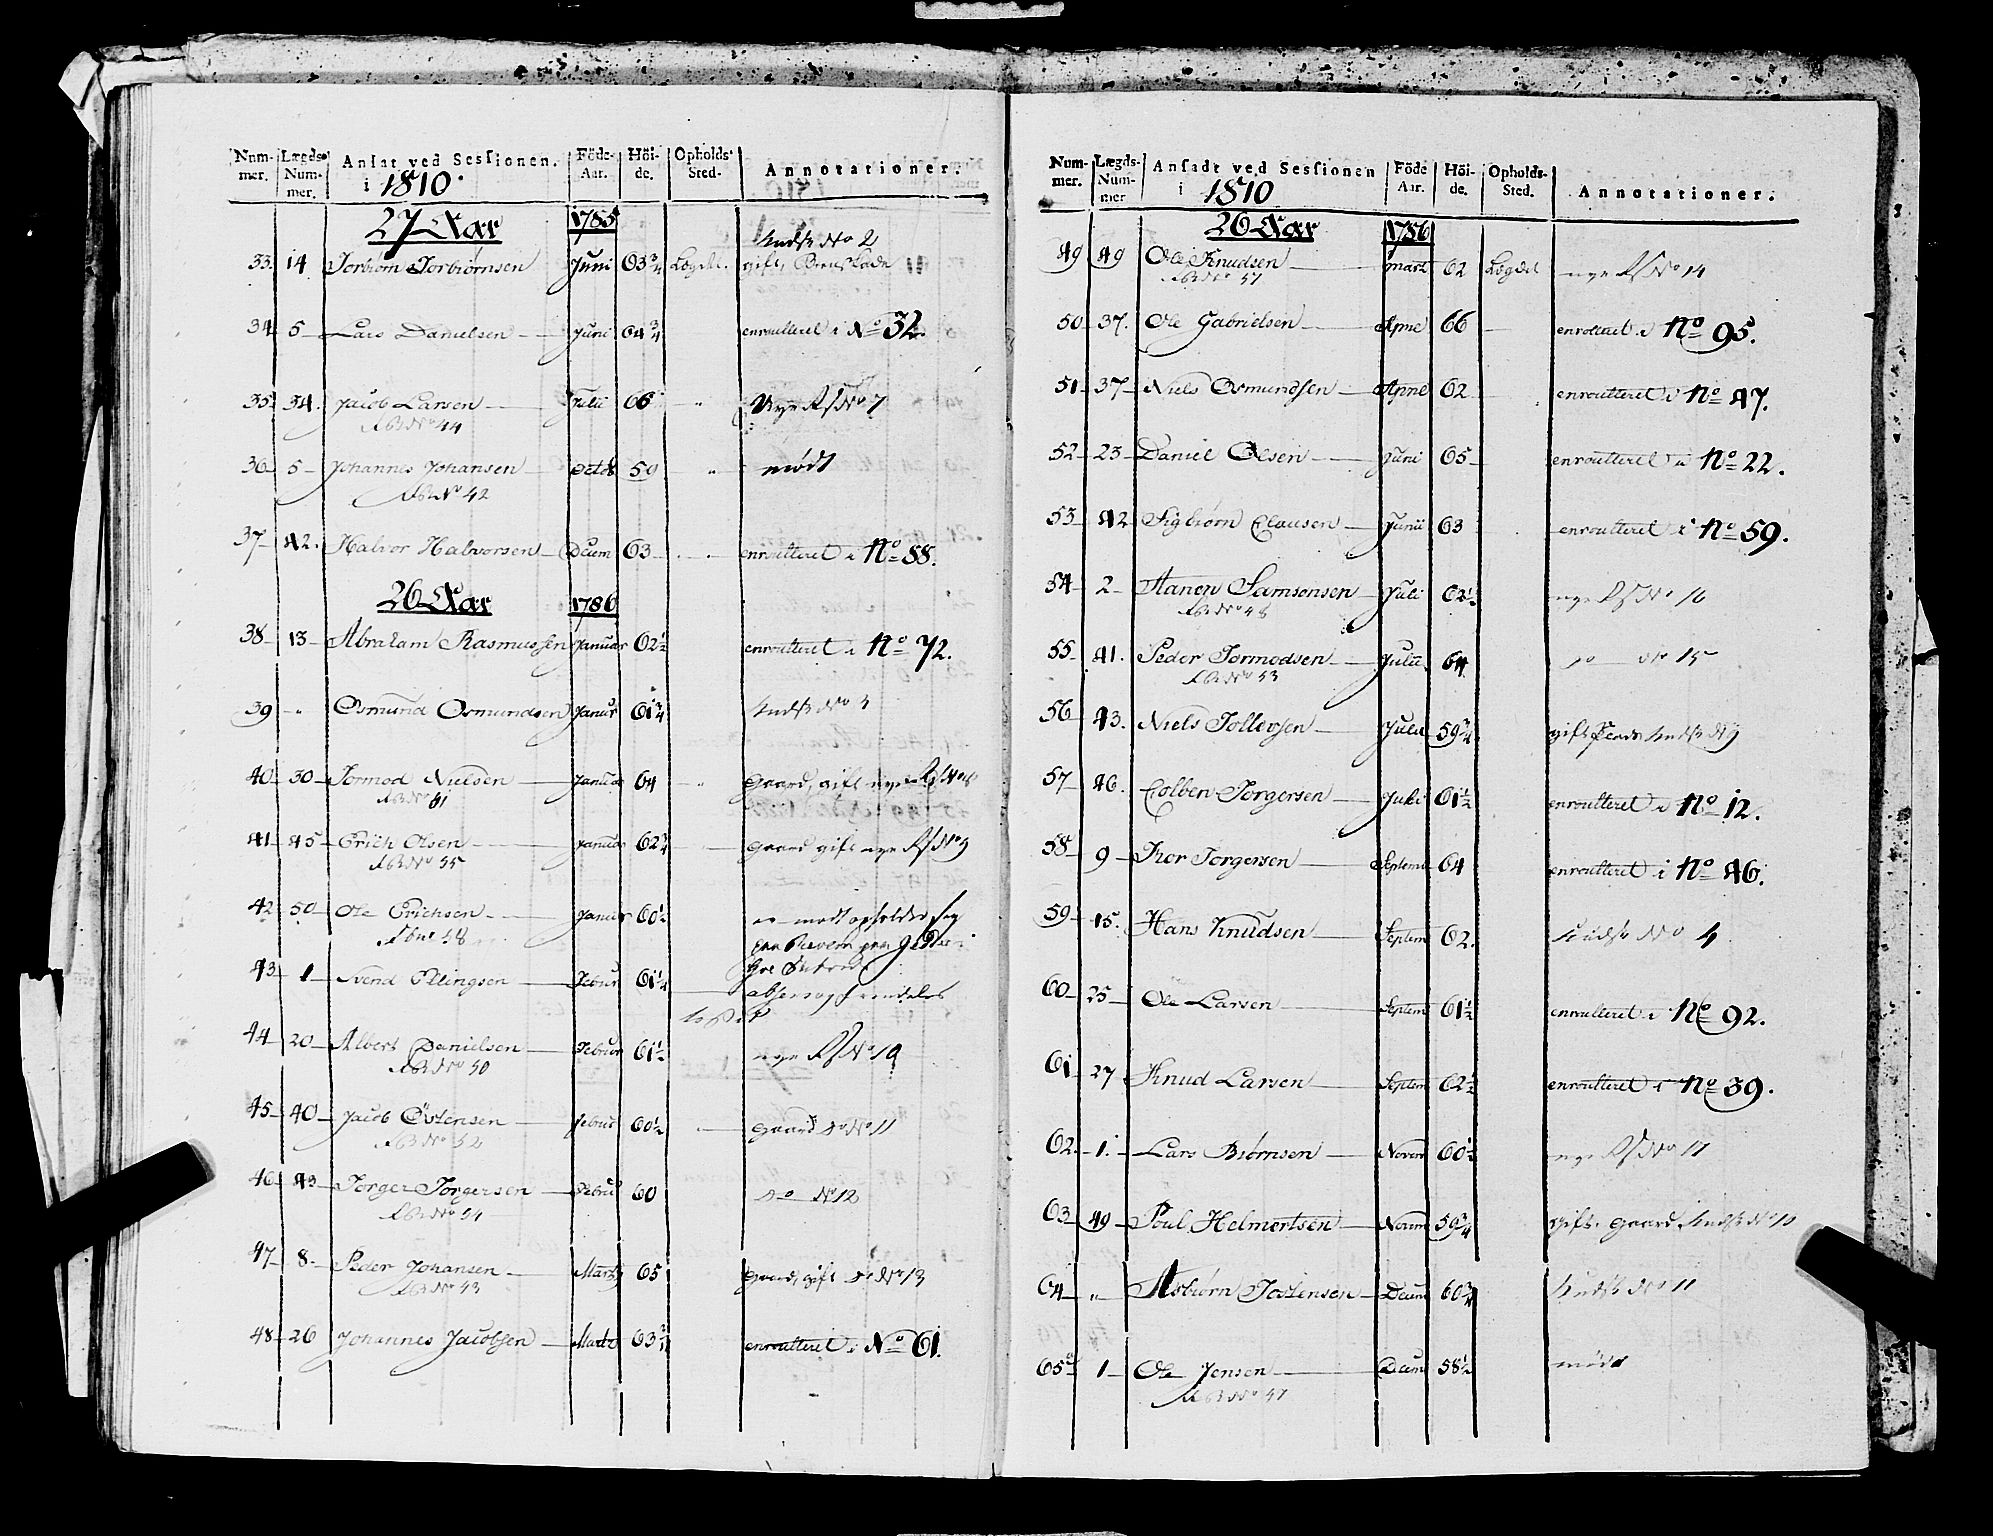 Num-mer. Lægds-Num-mer. Ansat ved Sessionen. i 1810. Föde-Aar. Höi-de. Opholds-Sted. Annotationer.
27 Aar 1785
33. 14 Torbiørn Torbiørnsen Juni 63 3/4 Lægdet. Inds No 2
gift
34 5 Lars Danielsen Juni 64 3/4 enroulleret i No 32.
35 34. Jacob Larsen Julii 66 " Nye RS No 7
No 44
36 5 Johannes Johansen Octob 59 " mødt
No 42
37 42. Halvor Halvorsen Decem 63 " enroulleret i No 88.
26 Aar 1786
38 13 Abraham Rasmussen Januar 62 1/2 enroulleret i No 72.
39 " Osmund Osmundsen Janur 61 3/4 Inds No 3
40 30 Tormod Nielsen Januar 64 " Gaard, gift nye RS No
41 45 Erich Olsen Januar 62 3/4 Gaard gift nye RS No 9
No 55
42 50 Ole Erichsen Janur 60 1/2 mødt opholder sig
58
43 1 Svend Ellingsen Febur 61 1/4
44 20 Albert Danielsen Februr 61 1/2 nye RS No 10
No 50
45 40 Jacob Östensen Februr 60 1/2 Gaard do No 11
No 52
46 43 Torger Torgersen Februr 60 do No 12
No 54
47 8 Peder Johansen Marty 65 Gaard, gift do No 13
No 43
48 26 Johannes Jacobsen Marts 63 3/4 enroulleret i No 61.
Num-mer. Lægds-Num-mer Ansadt ved Sessionen i 1810 Föde Aar. Höi-de. Opholds-Sted. Annotationer.
26 Aar 1786
49 49 Ole Knudsen Marts 62 Lægdet nye RS No 14
No 57
50 37. Ole Gabrielsen April 66 enroulleret i No 95.
51 37 Niels Osmundsen April 62 enroulleret i No 47.
52 23 Daniel Olsen Juni 65 enroulleret i No 22.
53 42 Sigbiørn Clausen Junii 63 enroulleret i No 59.
54 2 Aanen Samsensen Juli 62 1/2 nye RS No 16
No 48
55 41. Peder Tormodsen Julii 64 do No 15
No 53
56 43. Niels Tollevsen Julii 59 3/4 gift Inds No 9
57 46. Colben Torgersen Juli 61 1/2 enroulleret i No 12.
58 9 Thor Torgersen Septemb 64 enroulleret i No 46.
59 15. Hans Knudsen Septem 62. Inds No 4
60 25 Ole Larsen Septem 61 1/2 enroulleret i No 92.
61 27 Knud Larsen Septem 62 1/2 enroulleret i No 39.
62. 1. Lars Biørnsen Novem 60 1/2 nye RS No 17
63 49 Poul Helmertsen Novem 59 3/4 gift. Gaard Inds No 10
64 " Asbiørn Jostensen Decem 60 3/4 Inds No 11
65 1 Ole Jensen Decem 58 1/2 mødt
No 47